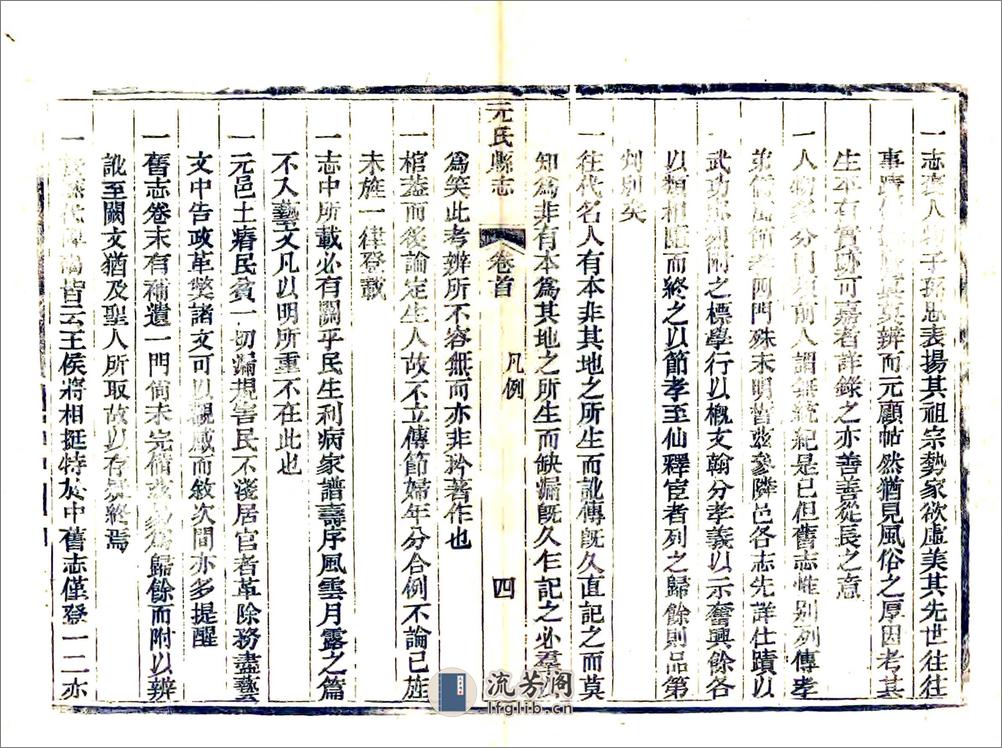 一志
人
子孫思表揚其祖宗勢家欲虛美其先世往往
事蹟
眞莫辨而元顧帖然猶見風俗之厚因考其
生平有實跡可嘉者詳錄之亦善善從長之意
一人物
分門
前人謂無統紀是已但舊志惟別列傳孝
弟
兩門殊未明晳兹參隣邑各志先詳仕蹟以
武功
附之標學行以概文翰分孝義以示奮興餘各
以類相
而終之以節孝至仙釋宦者列之歸餘則品第
判別矣
一往代名人有本非其地之所生而訛傳旣久直記之而莫
知爲非有本爲其地之所生而缺漏旣久乍記之必羣
爲笑此考辨所不容無而亦非矜著作也
一棺蓋而後論定生人故不立傳節婦年分合例不論已旌
未旌一律登載
一志中所載必有關乎民生利病家譜壽序風雲月露之篇
不入藝文凡以明所重不在此也
一元邑土瘠民貧一切漏規害民不淺居官者革除務盡藝
文中告政革獘諸文可以觀感而敘次間亦多提醒
一舊志卷末有補遺一門尙未完備兹
歸餘而附以辨
訛至闕文猶及聖人所取故以存疑終焉
一
皆云王侯將相挺特於中舊志僅登一二亦
元氏縣志
卷首
凡例
四
流芳阁
lfglib.cn